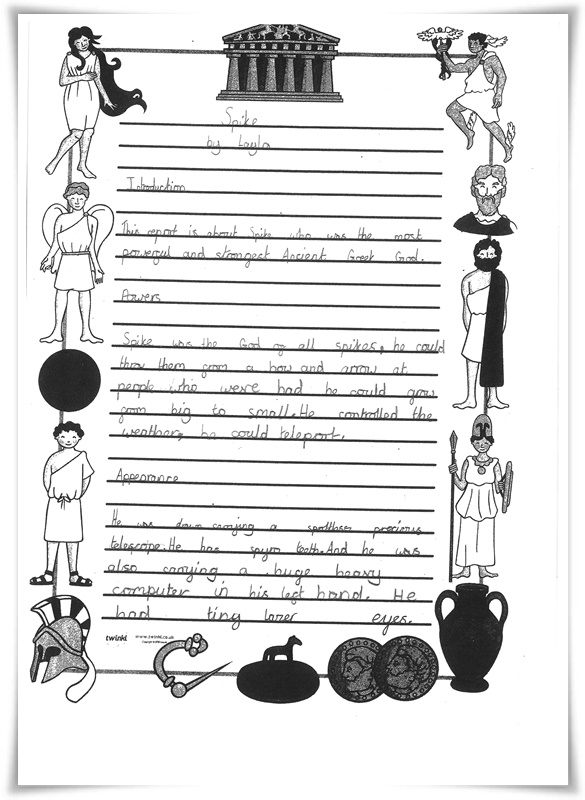 Spike
by Layla
Introduction
This report is about Spike who was the most
powerful and strongest Ancient Greek God.
Powers
Spike was the God of all spikes, he could
throw them from a bow and arrow at
people who were bad he could grow
from big to small. He controlled the
weather, he could teleport.
Appearance
He was carrying a precious
telescope. He has teeth. And he was
also carrying a huge heavy
computer in his left hand. He
had ting lazer eyes.
twinkl www.twinkl.co.uk